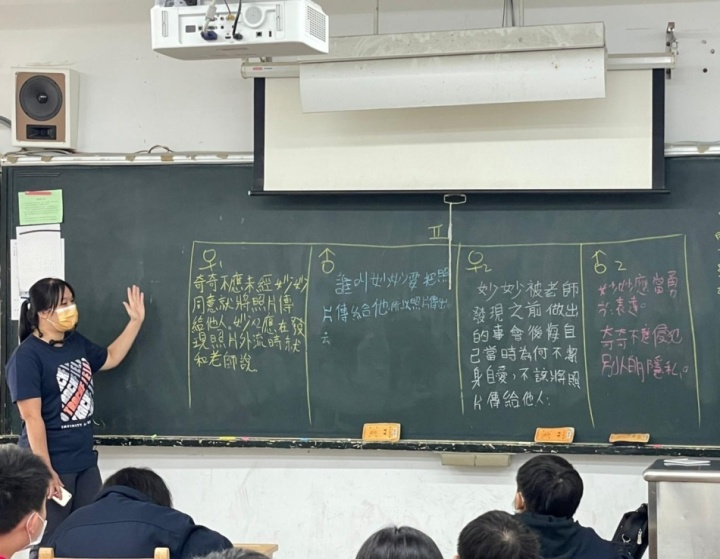 II
♀1
奇奇不應未經妙妙
同意就將照片傳
給他人,妙妙應在發
現照片外流時就
和老師說
♂
誰叫妙妙要把照
片傳給他
去
♀2
妙妙被老師
發現之前做出
的事會後悔自
己當時為何不潔
身自愛,不該將照
片傳給他人.
♂2
妙妙應當勇
於表達。
奇奇不應侵犯
別人的隱私。
INFINITY